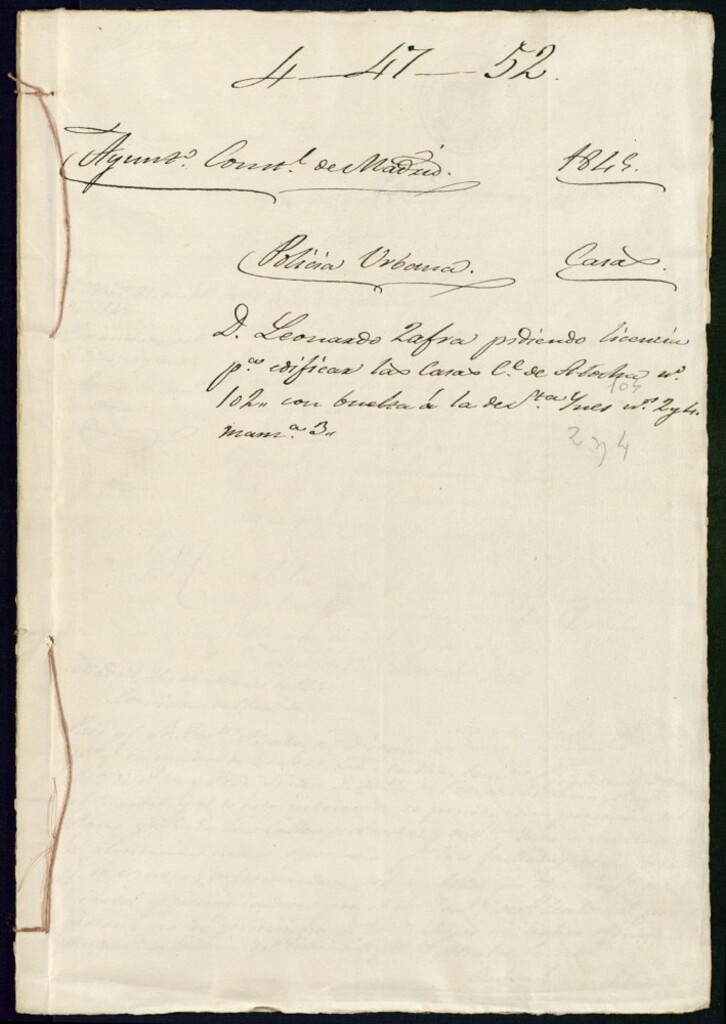 4-47-52.
Ayunto. Constl. de Madrid. 1845.
Policia Urbana. Casas.
D. Leonardo Zafra pidiendo licencia
pa. edificar las Casas Ce. de Atocha no.
102,, con buelta á la de Sta. Ynes ns. 2 y 4.
104
manza. 3,,
2 y 4